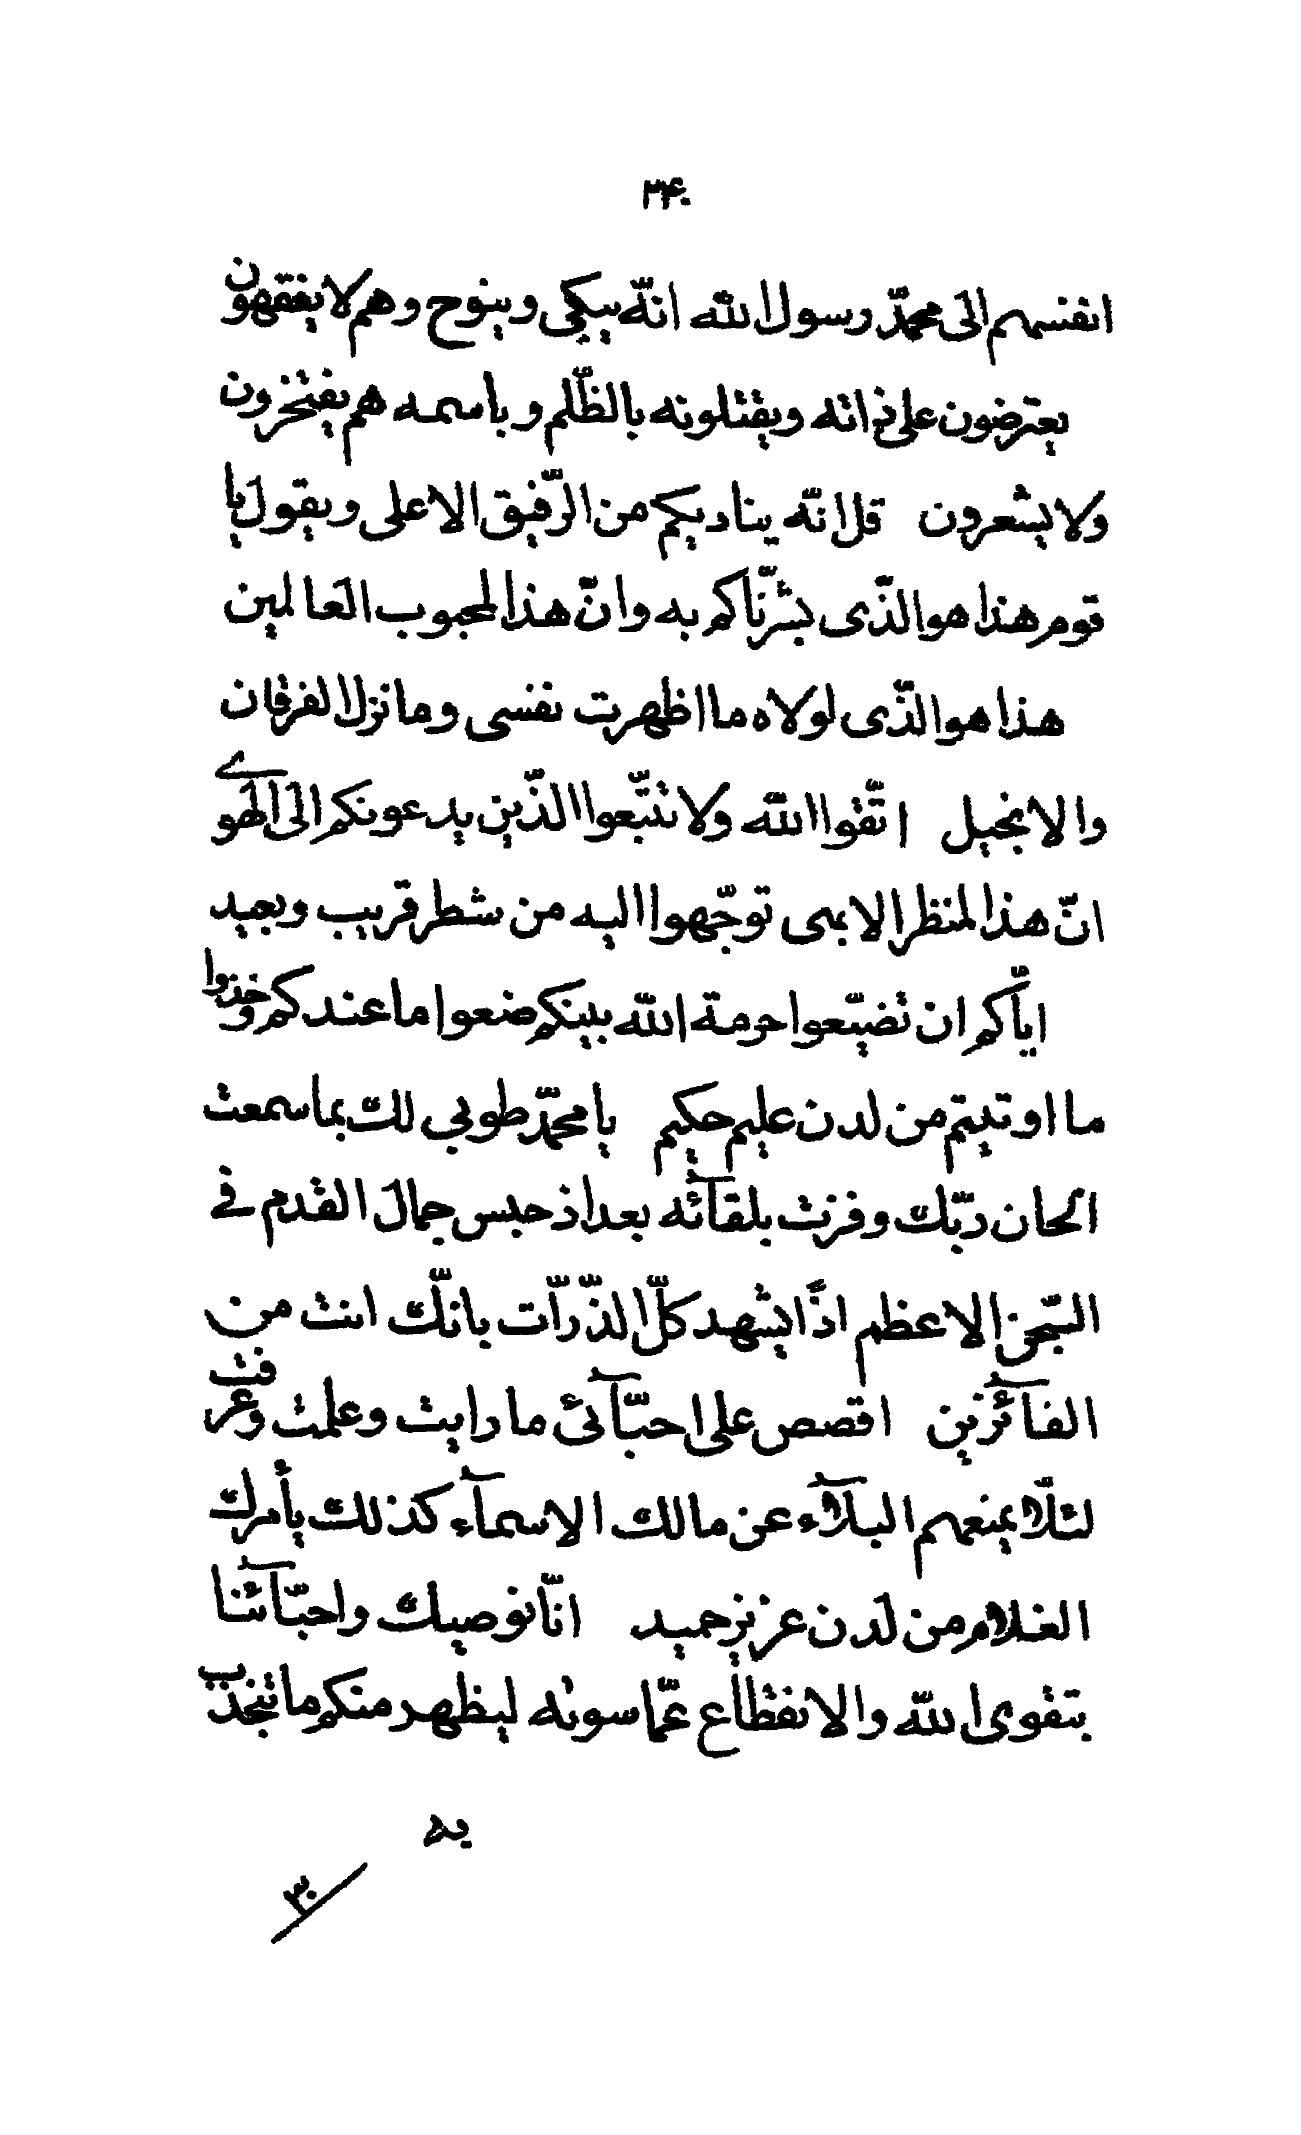 ۲۴۰
انفسهم الی محمّد رسول الله انّه یبکی و ینوح و هم لا یفقهون
یعترضون علی ذاته و یقتلونه بالظّلم و باسمه هم یفتخرون
ولا یشعرون قل انّه ینادیکم من الرّفیق الاعلی و یقول یا
قوم هذا هو الذّی بشّرناکم به و انّ هذا لمحبوب العالمین
هذا هو الذّی لولاه ما اظهرت نفسی و ما نزل الفرقان
والانجیل اتّقوا الله ولا تتّبعوا الذّین یدعونکم الی الهوی
انّ هذا لمنظر الابهی توجّهوا الیه من شطر قریب و بعید
ایّاکم ان تضیّعوا حرمة الله بینکم ضعوا ما عندکم و خذوا
ما اوتیتم من لدن علیم حکیم یا محمّد طوبی لک بما سمعت
الحان ربّک و فزت بلقآئه بعد اذ حبس جمال القدم فی
السّجن الاعظم اذًا یشهد کلّ الذّرّات بانّک انت من
الفآئزین اقصص علی احبّآئی ما رایت و علمت و عرفت
لئلّا یمنعهم البلآء عن مالک الاسمآء کذلک یأمرک
الغلام من لدن عزیز حمید انّا نوصیک و احبّآئنا
بتقوی الله والانقطاع عمّا سوئه لیظهر منکم ما تنجذب
به
۳۰